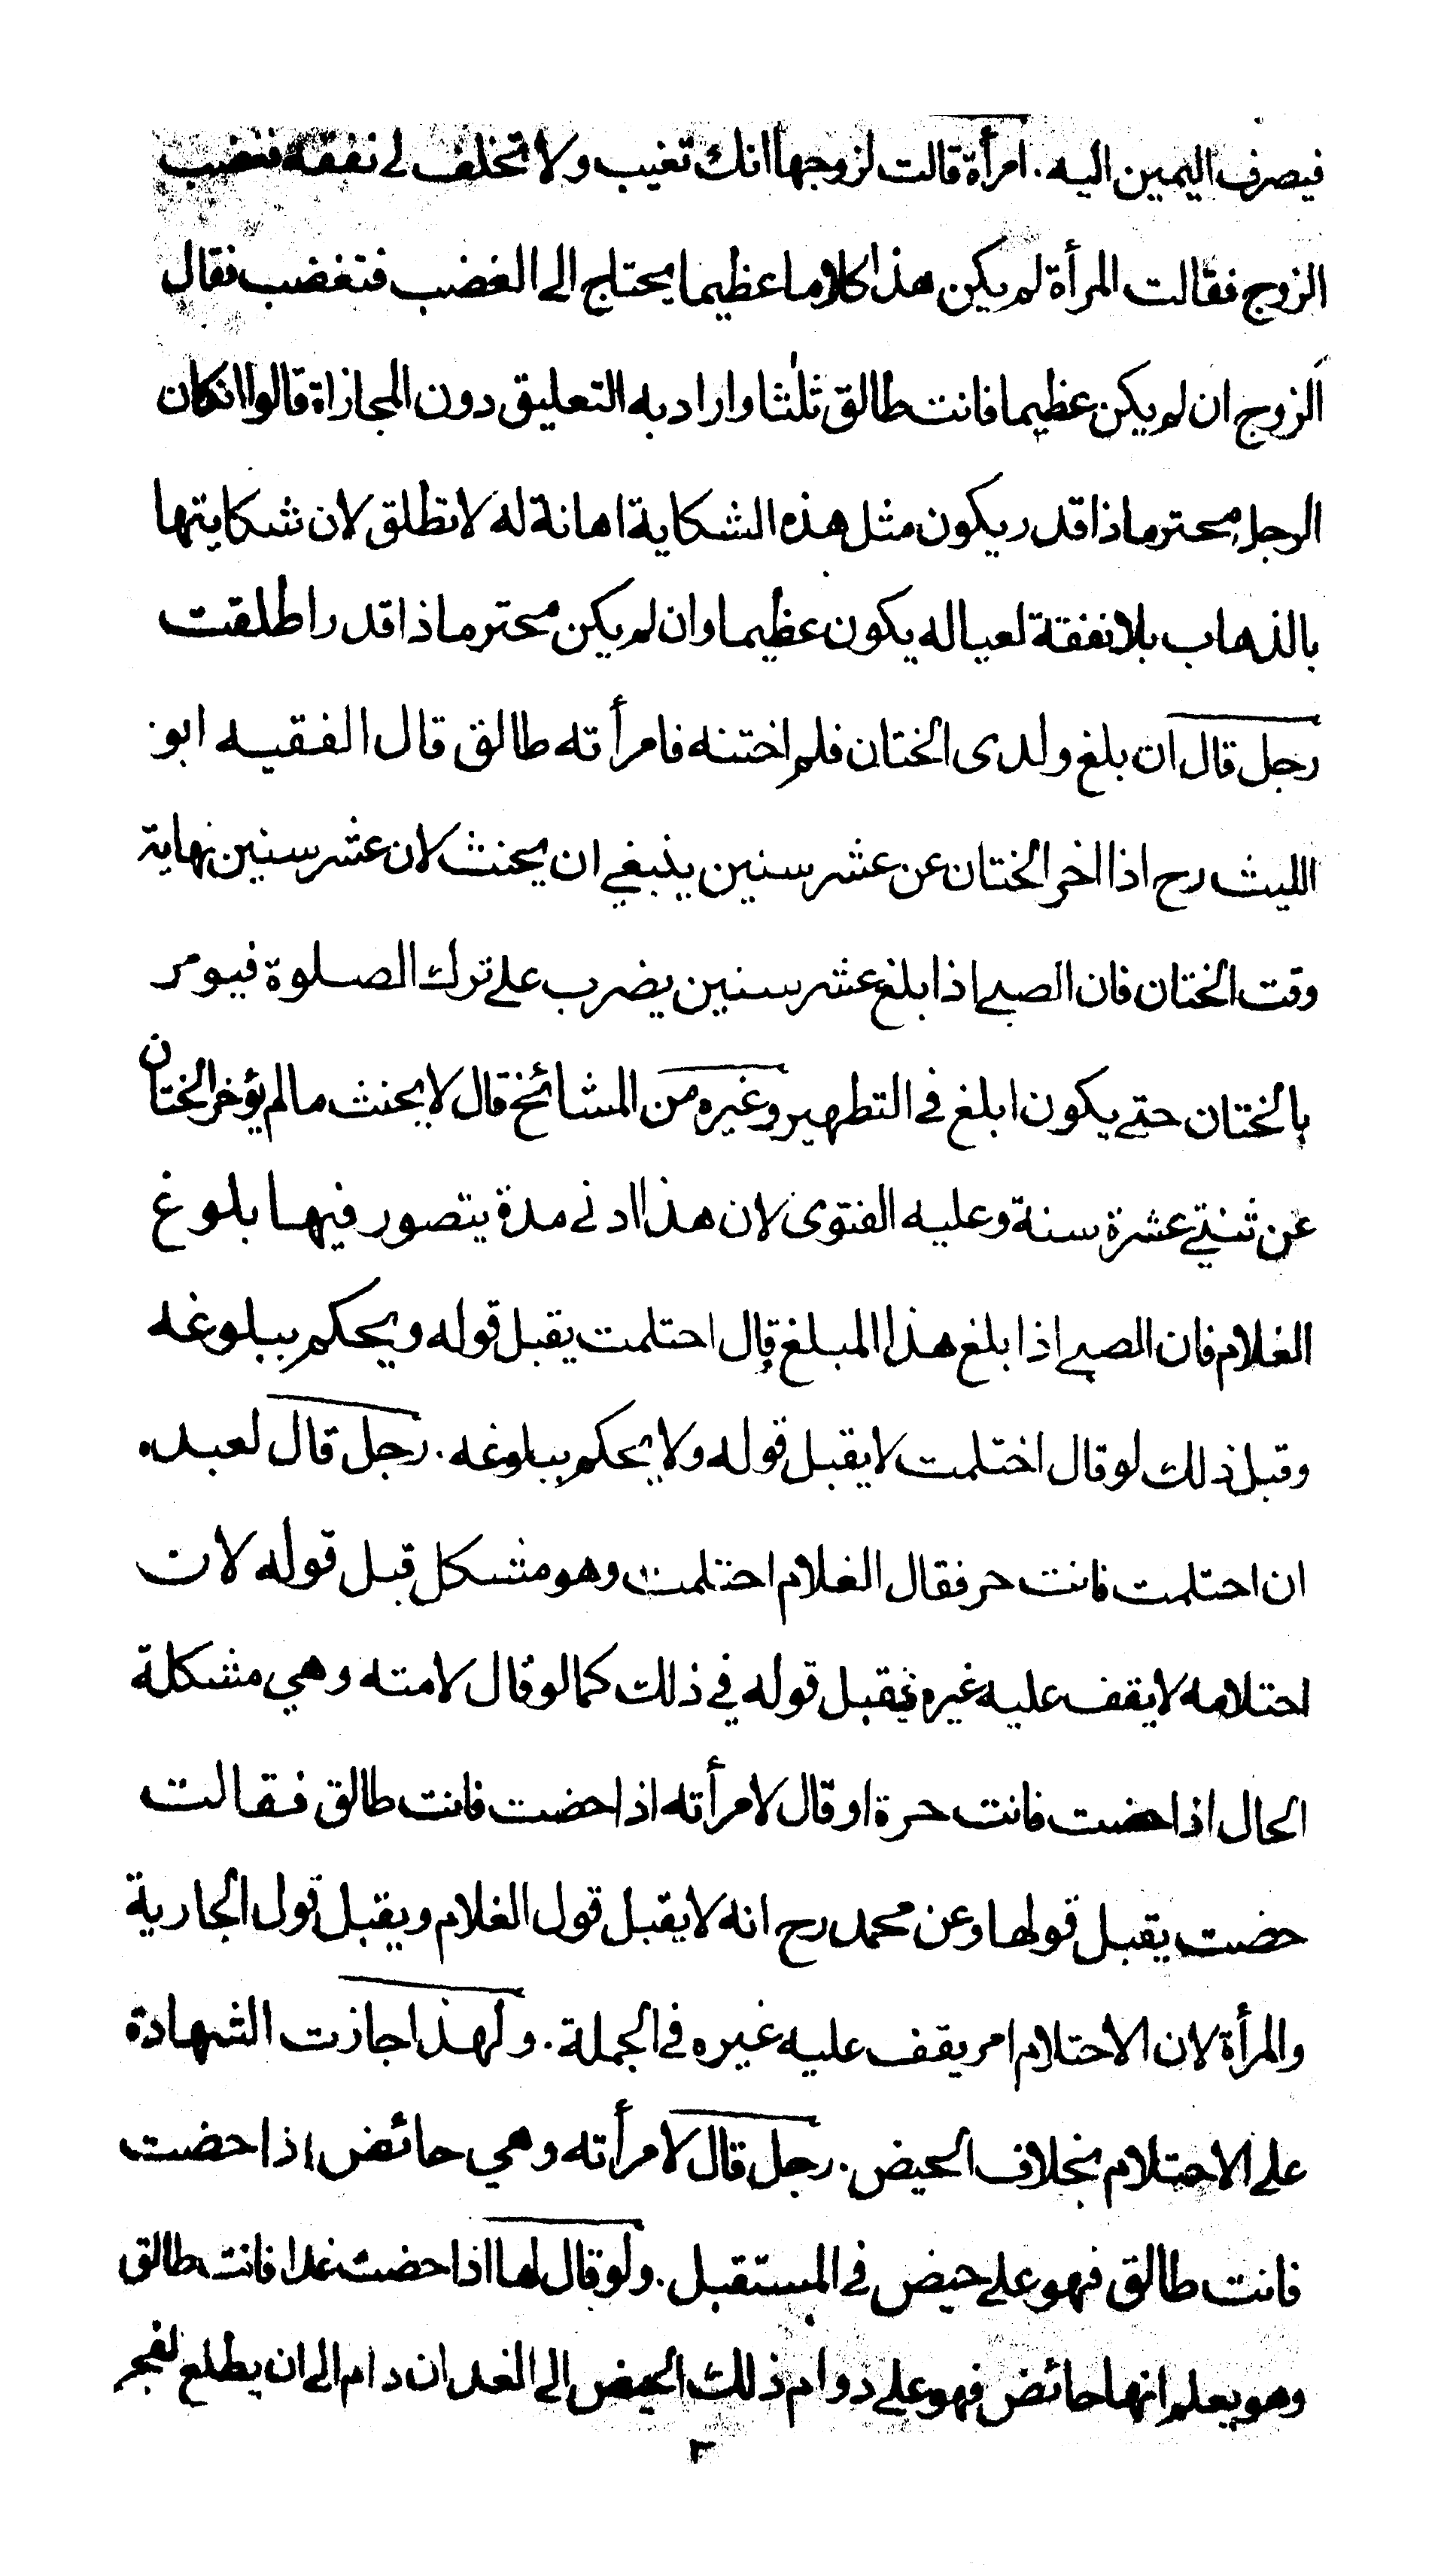 فيصرف اليمين اليه . امرأة قالت لزوجها انك تغيب ولا تخلف لے نفقة فغضب
الزوج فقالت المرأة لم يكن هذا كلاما عظيما يحتاج الى الغضب فتغضب فقال
الزوج ان لم يكن عظيما فانت طالق ثلثا واراد به التعليق دون المجازاة قالوا ان كان
الرجل محترما ذا قدر يكون مثل هذه الشكاية اهانة له لا تطلق لان شكايتها
بالذهاب بلا نفقة لعياله يكون عظيما وان لم يكن محترما ذا قدر ا طلقت
رجل قال ان بلغ ولدى الختان فلم اختنه فامرأته طالق قال الفقيه ابو
الليث رح اذا اخر الختان عن عشر سنين ينبغي ان يحنث لان عشر سنين نهاية
وقت الختان فان الصبے اذا بلغ عشر سنين يضرب علے ترك الصلوة فيومر
بالختان حتے يكون ابلغ فے التطهير وغيره من المشائخ قال لا يحنث ما لم يؤخر الختان
عن ثنتے عشرة سنة وعليه الفتوى لان هذا ادنے مدة يتصور فيها بلوغ
الغلام فان الصبے اذا بلغ هذا المبلغ قال احتلمت يقبل قوله ويحكم ببلوغه
وقبل ذلك لو قال اختلمت لا يقبل قوله ولا يحكم ببلوغه . رجل قال لعبده
ان احتلمت فانت حر فقال الغلام احتلمت وهو مشكل قبل قوله لان
احتلامه لا يقف عليه غيره فيقبل قوله في ذلك كما لو قال لامته وهي مشكلة
الحال اذا حضت فانت حرة او قال لامرأته اذا حضت فانت طالق فقالت
حضت يقبل قولها وعن محمد رح انه لا يقبل قول الغلام ويقبل قول الجارية
والمرأة لان الاحتلام امر يقف عليه غيره فے الجملة . ولهذا جازت الشهادة
علے الاحتلام بخلاف الحيض . رجل قال لامرأته وهي حائض اذا حضت
فانت طالق فهو علے حيض فے المستقبل . ولو قال لها اذا حضت غدا فانت طالق
وهو يعلم انها حائض فهو علے دوام ذلك الحيض الى الغد ان دام الى ان يطلع لفجر